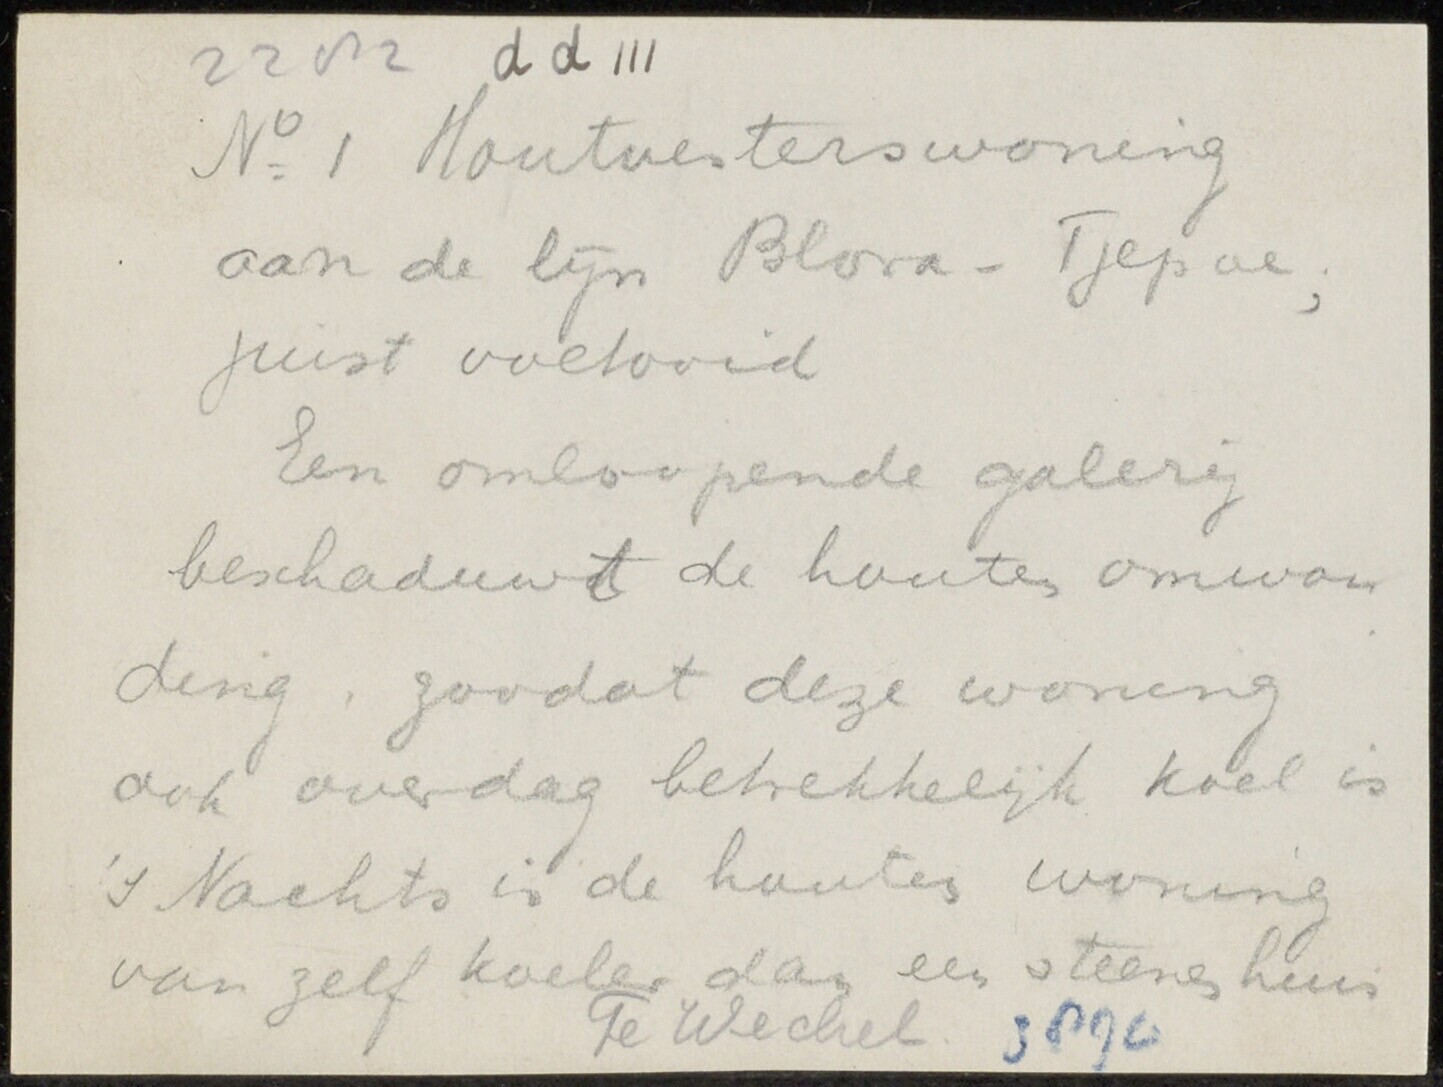 22812 dd III
No 1 Houtvesterswoning
aan de lijn Blora - Tjepoe;
juist voltooid
Een omloopende galerij
beschaduwt de houten omwan
ding, zoodat deze woning
ook overdag betrekkelijk koel is
's Nachts is de houten woning
van zelf koeler dan een steenen huis
Te Wechel